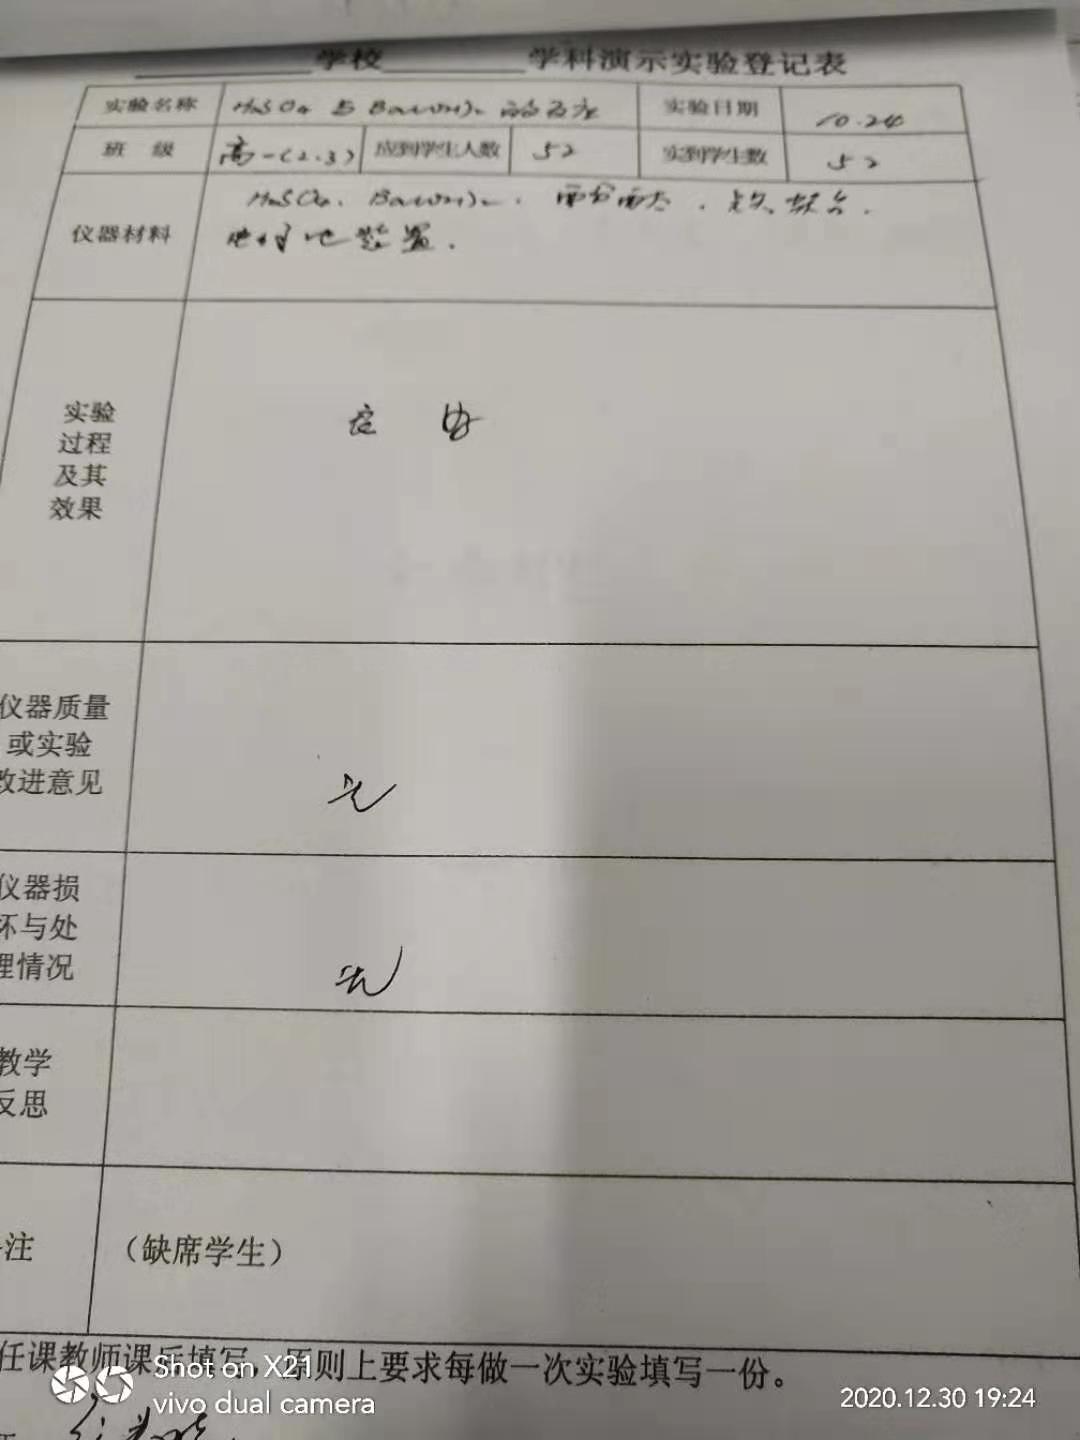 学校 学科演示实验登记表
实验名称 H₂SO₄ 与 Ba(OH)₂ 的反应 实验日期 10.24
班 级 高一(2.3) 应到学生人数 52 实到学生数 52
仪器材料 H₂SO₄、Ba(OH)₂、酚酞、铁架台、
装置.
实验
过程
及其
效果
良 好
仪器质量
或实验
改进意见
无
仪器损
坏与处
理情况
无
教学
反思
注 (缺席学生)
任课教师课后填写,原则上要求每做一次实验填写一份。
Shot on X21
vivo dual camera
2020.12.30 19:24